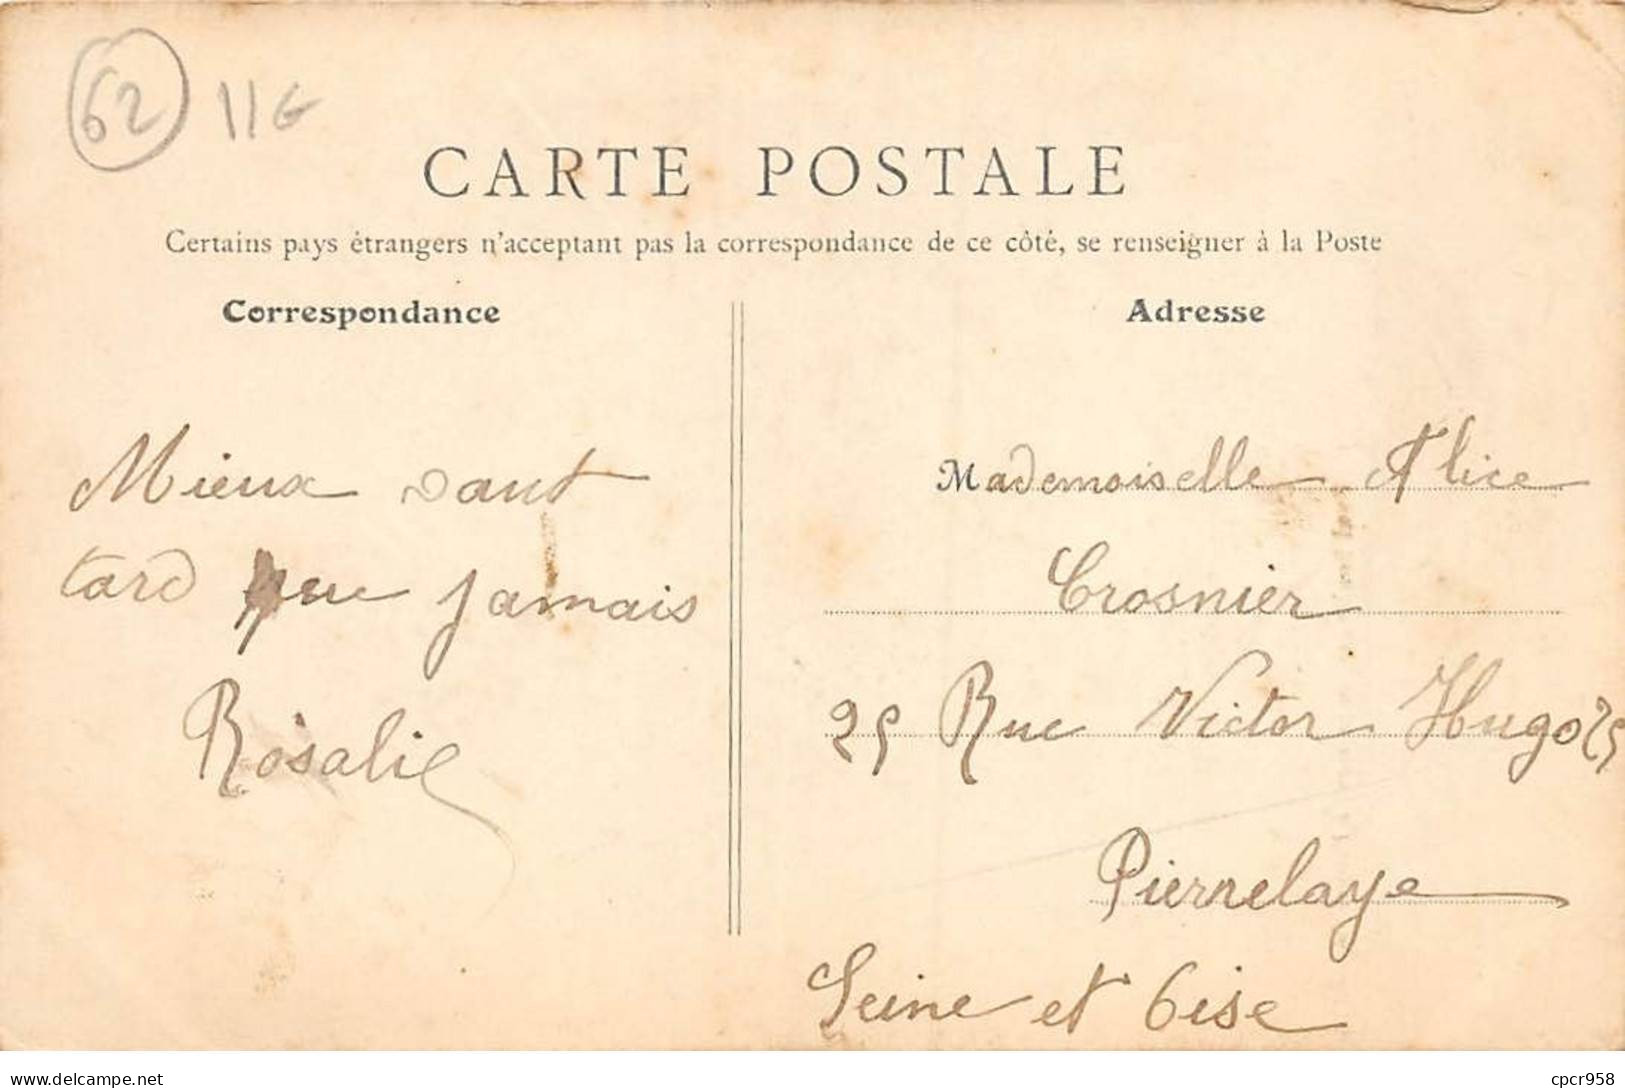 62 11G
CARTE POSTALE
Certains pays étrangers n'acceptant pas la correspondance de ce côté, se renseigner à la Poste
Correspondance
Mieux vaut
tard que jamais
Rosalie
Adresse
Mademoiselle Alice
Crosnier
25 Rue Victor Hugo 25
Pierrelaye
Seine et Oise
www.delcampe.net
cpcr958